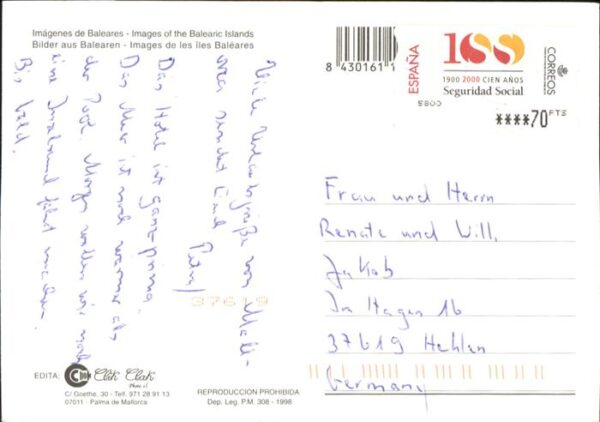 Imágenes de Baleares - Images of the Balearic Islands
Bilder aus Balearen - Images de les îles Baléares
8 430161 1
ESPAÑA
100
1900 2000 CIEN AÑOS
Seguridad Social
CORREOS
0085
****70 PTS
Viele Urlaubsgrüße von Mall-
orca sendet Euch Peter
Das Hotel ist ganz prima.
Das Meer ist noch wärmer als
der Pool. Morgen wollen wir noch
eine Inselrundfahrt machen.
Bis bald.
Frau und Herrn
Renate und Will.
Jakob
In Hagen 16
37619 Hehlen
Germany
37619
EDITA:
Clik Clak
C/ Goethe, 30 - Telf. 971 28 91 13
07011 - Palma de Mallorca
REPRODUCCION PROHIBIDA
Dep. Leg. P.M. 308 - 1998